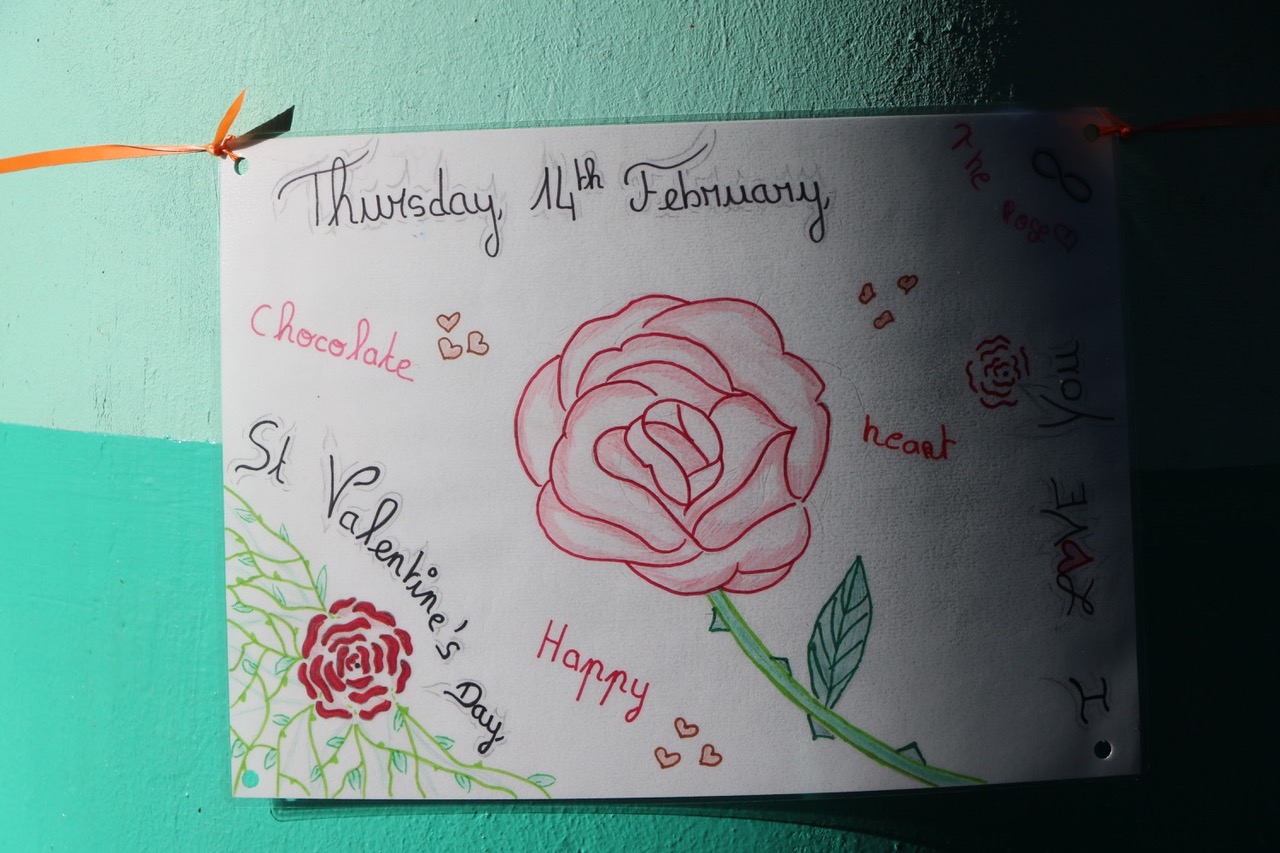 Thursday, 14th February,
The
Rose
Chocolate
heart
St Valentine's Day
Happy
I LOVE You